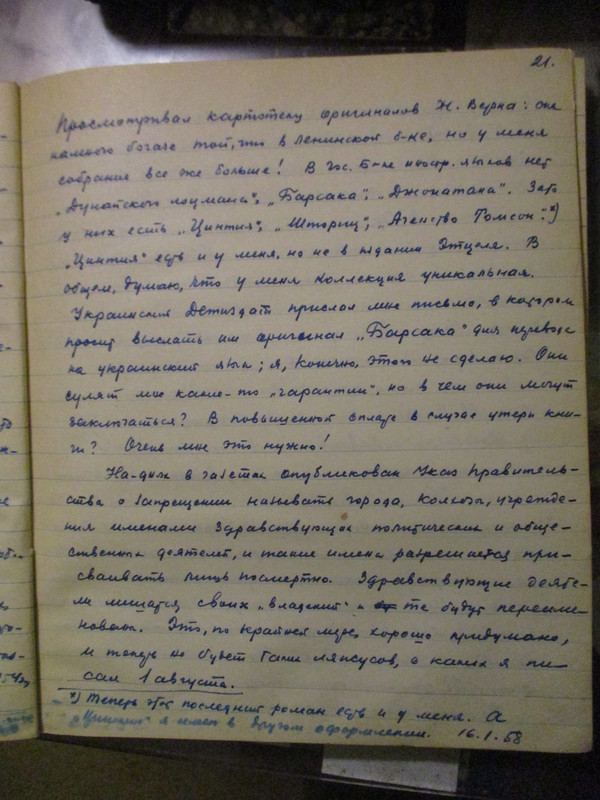 21.
Просматривал картотеку оригиналов Ж. Верна: она
намного богаче той, что в Ленинской б-ке, но у меня
собрание все же больше! В Гос. Б-ке иностр. языков нет
„Дунайского лоцмана“, „Барсака“, „Джонатана“. Зато
у них есть „Цинтия“, „Шторыц“, „Агенство Томсон“.*)
„Цинтия“ есть и у меня, но не в издании Этцеля. В
общем, думаю, что у меня коллекция уникальная.
Украинский Детиздат прислал мне письмо, в котором
просит выслать им оригинал „Барсака“ для перевода
на украинский язык; я, конечно, этого не сделаю. Они
сулят мне какие-то „гарантии“, но в чем они могут
заключаться? В повышенной оплате в случае утери кни-
ги? Очень мне это нужно!
На-днях в газетах опубликован Указ Правитель-
ства о запрещении называть города, колхозы, учрежде-
ния именами здравствующих политических и обще-
ственных деятелей, и такие имена разрешается при-
сваивать лишь посмертно. Здравствующие деяте-
ли лишатся своих „владений“ и те будут переиме-
нованы. Это, по крайней мере, хорошо придумано,
и теперь не будет таких ляпсусов, о каких я пи-
сал 1 августа.
*) Теперь этот последний роман есть и у меня. А
„Цинтию“ я имею в другом оформлении. 16.1.58